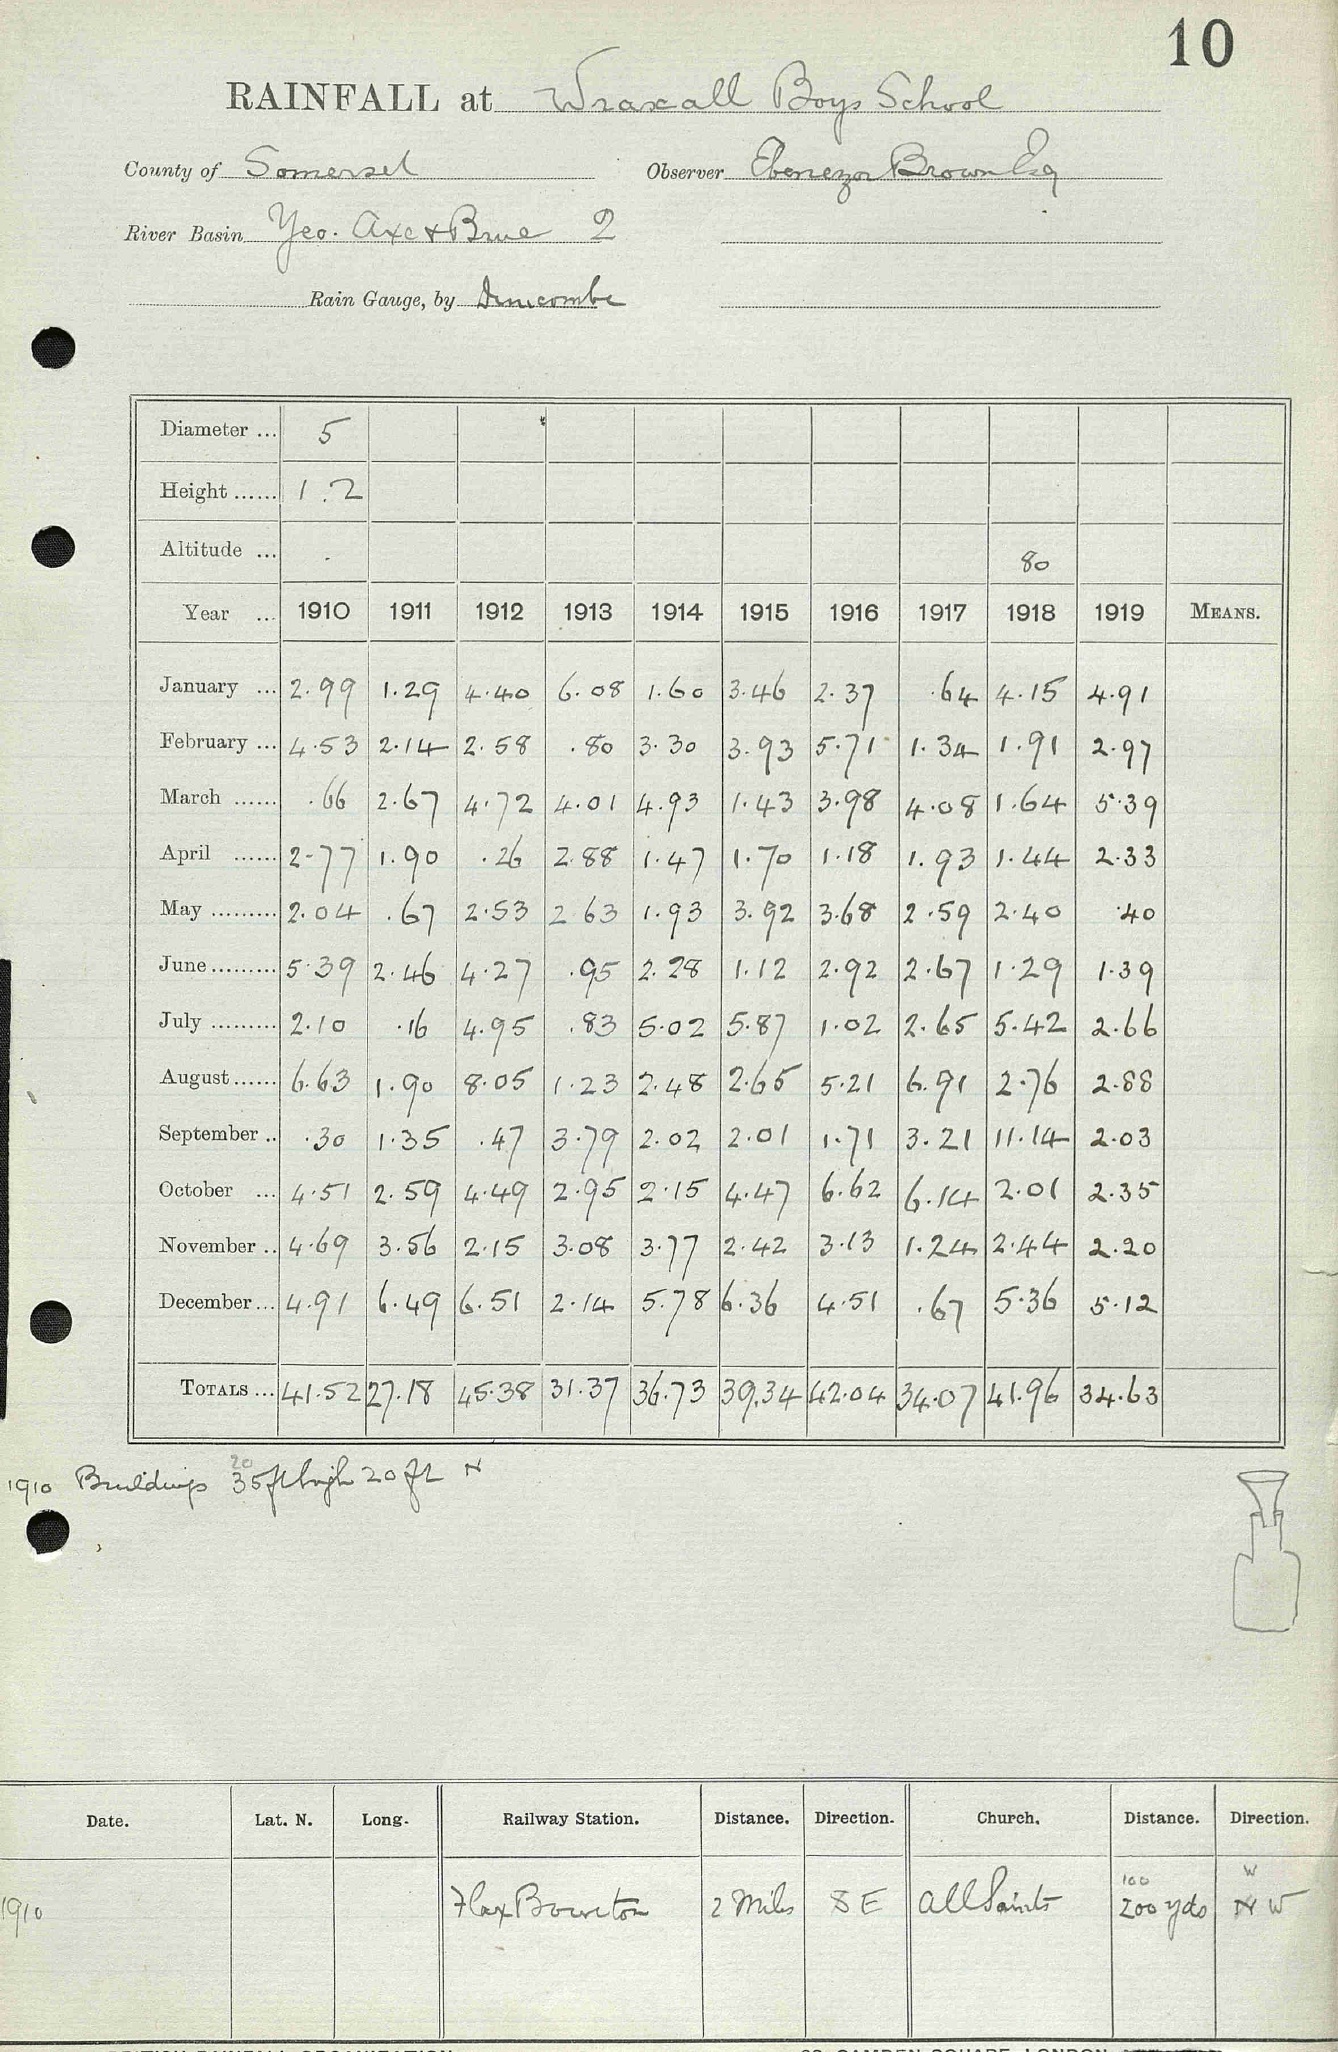 10
RAINFALL at Wraxall Boys School
County of Somerset Observer Ebenezer Brown Esq
River Basin Yeo. Axe & Brue 2
Rain Gauge, by
Diameter ... 5
Height ...... 1.2
Altitude ... 80
Year ... 1910 1911 1912 1913 1914 1915 1916 1917 1918 1919 MEANS.
January ... 2.99 1.29 4.40 6.08 1.60 3.46 2.37 .64 4.15 4.91
February ... 4.53 2.14 2.58 .80 3.30 3.93 5.71 1.34 1.91 2.97
March ...... .66 2.67 4.72 4.01 4.93 1.43 3.98 4.08 1.64 5.39
April ...... 2.77 1.90 .26 2.88 1.47 1.70 1.18 1.93 1.44 2.33
May ......... 2.04 .67 2.53 2.63 1.93 3.92 3.68 2.59 2.40 .40
June ......... 5.39 2.46 4.27 .95 2.28 1.12 2.92 2.67 1.29 1.39
July ......... 2.10 .16 4.95 .83 5.02 5.87 1.02 2.65 5.42 2.66
August ...... 6.63 1.90 8.05 1.23 2.48 2.65 5.21 6.91 2.76 2.88
September .. .30 1.35 .47 3.79 2.02 2.01 1.71 3.21 11.14 2.03
October ... 4.51 2.59 4.49 2.95 2.15 4.47 6.62 6.14 2.01 2.35
November .. 4.69 3.56 2.15 3.08 3.77 2.42 3.13 1.24 2.44 2.20
December ... 4.91 6.49 6.51 2.14 5.78 6.36 4.51 .67 5.36 5.12
TOTALS ... 41.52 27.18 45.38 31.37 36.73 39.34 42.04 34.07 41.96 34.63
20
1910 Buildings 35 ft high 20 ft N
Date. Lat. N. Long. Railway Station. Distance. Direction. Church. Distance. Direction.
100 W
1910 Flax Bourton 2 Miles S E All Saints 200 yds N W
BRITISH RAINFALL ORGANIZATION 62 CAMDEN SQUARE, LONDON